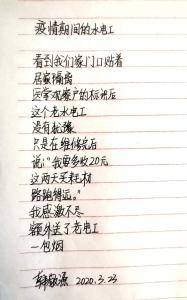 疫情期间的水电工
看到我们家门口贴着
居家隔离
医学观察户的标识后
这个老水电工
没有犹豫
只是在维修完后
说："我要多收20元
这两天买耗材
路跑得远。"
我感激不尽
额外送了老电工
一包烟
韩敬源 2020.3.23